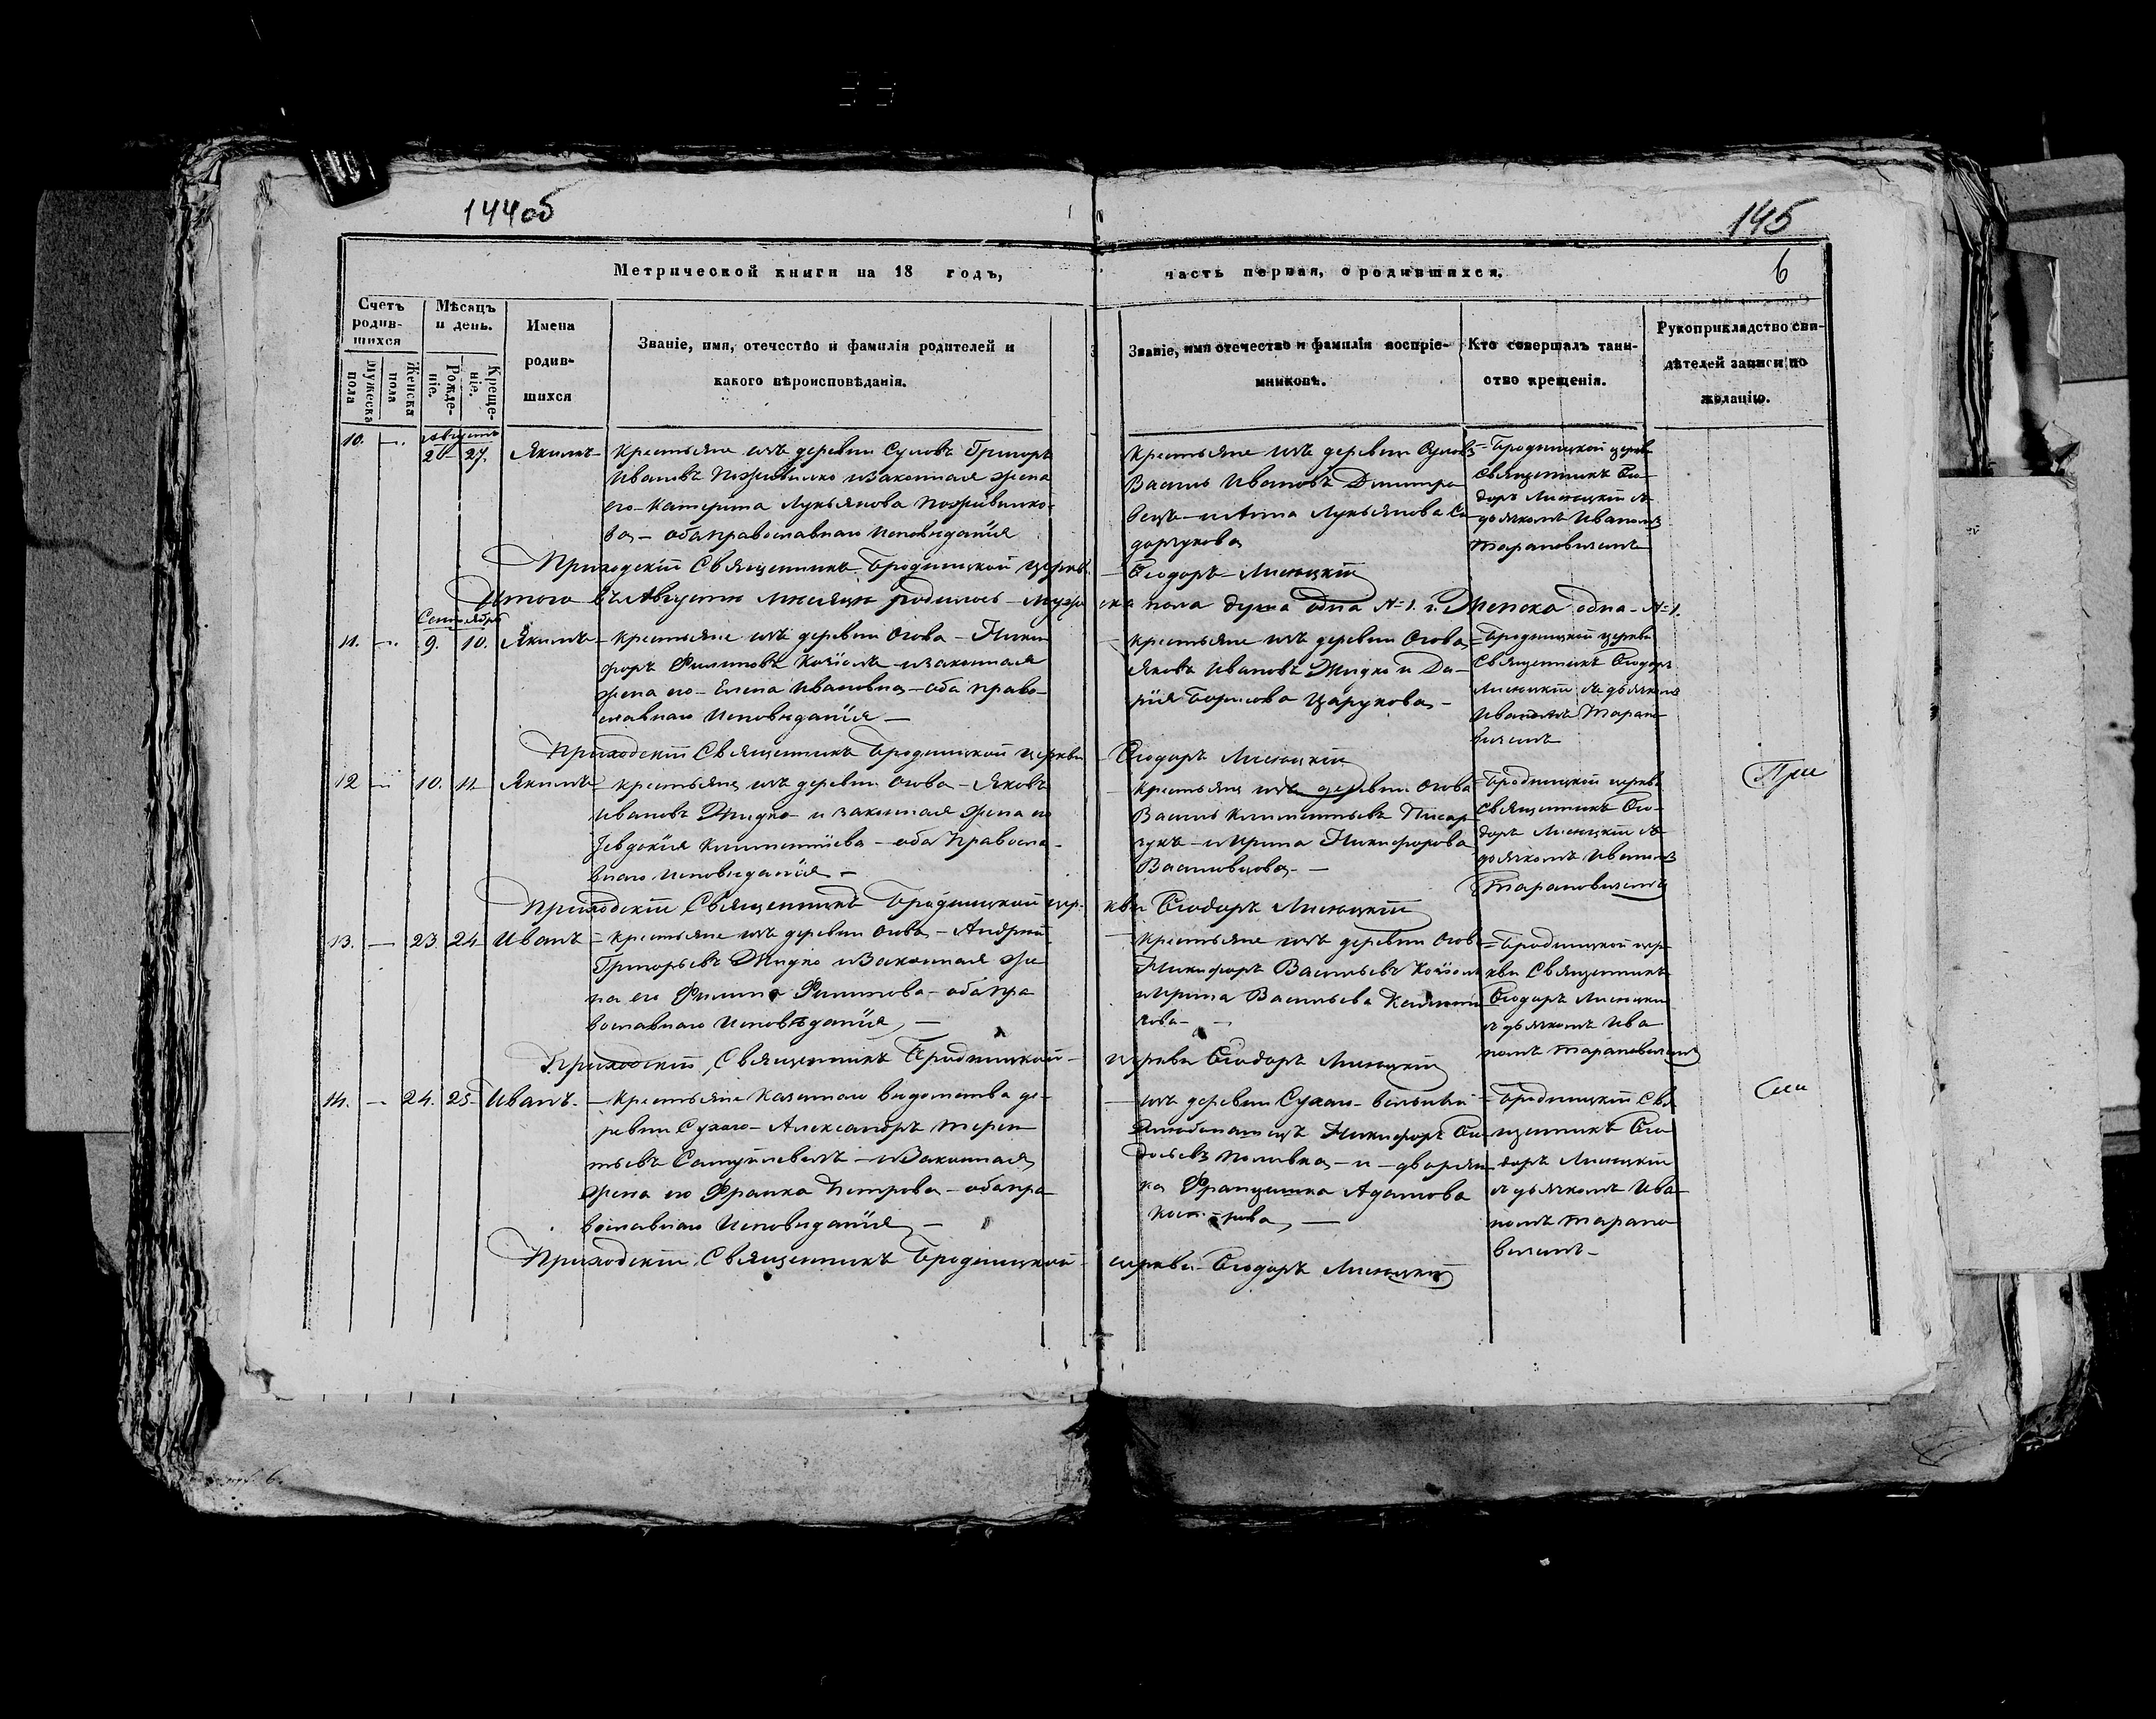 144об
145
6
Метрической книги на 18 годъ,
часть первая, о родившихся.
Счетъ родив-шихся
Мѣсяцъ и день.
Имена родив-шихся
Званіе, имя, отечество и фамилія родителей и какого вѣроисповѣданія.
Званіе, имя отечество и фамилія воспріе-мниковъ.
Кто совершалъ таин-ство крещенія.
Рукоприкладство сви-дѣтелей записи по желанію.
Мужеска пола
Женска пола
Рожде-ніе.
Креще-ніе.
Августъ
10. —. 26 27. Якимъ
Крестьяне изъ деревни Суловъ Григорь
Ивановъ Поживилко и Законная жена
его Катерина Лукьянова Поживилко-
ва — оба православнаго исповѣданія
Крестьяне изъ деревни Суловъ
Василь Ивановъ Дмитро
вецъ и Анна Лукьянова Си
дорчукова
Бродницкой церкви
Священникъ Ѳео-
доръ Лисецкій съ
дьячкомъ Иваномъ
Тарановичемъ
Приходскій Священникъ Бродницкой церкви
Ѳеодоръ Лисецкій
Итого въ Августѣ мѣсяцѣ родилось — муже
ска пола душа одна №1. и Женска одна №1.
Сентябрь
11. —. 9. 10. Якимъ
Крестьяне изъ деревни Огова — Ники
форъ Филиповъ Козіолъ и законная
жена его Елена Ивановна — оба право-
славнаго исповѣданія —
Крестьяне изъ деревни Огова
Яковъ Ивановъ Жидко и Да-
рія Борисова Царукова —
Бродницкой церкви
Священникъ Ѳеодоръ
Лисецкій съ дьячкомъ
Иваномъ Тарано-
вичемъ
Приходскій Священникъ Бродницкой церкви
Ѳеодоръ Лисецкій
12 — 10. 11 Якимъ
Крестьяне изъ деревни Огова — Яковъ
Ивановъ Жидко и законная жена его
Евдокія Климентіева — оба Правосла-
внаго исповѣданія —
Крестьяне изъ деревни Огова
Василь Климентьевъ Писар
чукъ и Ирина Никифорова
Васильовцова —
Бродницкой церкви
Священникъ Ѳео-
доръ Лисецкій съ
дьячкомъ Иваномъ
Тарановичемъ
При
Приходскій Священникъ Бродницкой цер-
кви Ѳеодоръ Лисецкій
13. — 23 24 Иванъ
Крестьяне изъ деревни Огова — Андрей
Григорьевъ Жидко и Законная же-
на его Филипова — оба пра
вославнаго исповѣданія, —
Крестьяне изъ деревни Огова
Никифоръ Васильевъ Козіолъ
и Ирина Васильева
Бродницкой цер-
кви Священникъ
Ѳеодоръ Лисецкій
съ дьячкомъ Ива
номъ Тарановичемъ
Приходскій Священникъ Бродницкой
церкви Ѳеодоръ Лисецкій
14. — 24. 25 Иванъ.
— Крестьяне Казеннаго вѣдомства де-
ревни Сухаго — Александръ Терен
тьевъ — и Законная
жена его Франка Петрова — оба пра
вославнаго исповѣданія —
— изъ деревни Сухаго — вольный
Никифоръ Си
Поливка — и — дворян
ка Францишка Адамова
Бродницкій Свя
щенникъ Ѳео
доръ Лисецкій
съ дьячкомъ Ива
номъ Тарано
вичемъ —
Приходскій Священникъ Бродницкой
церкви Ѳеодоръ Лисецкій